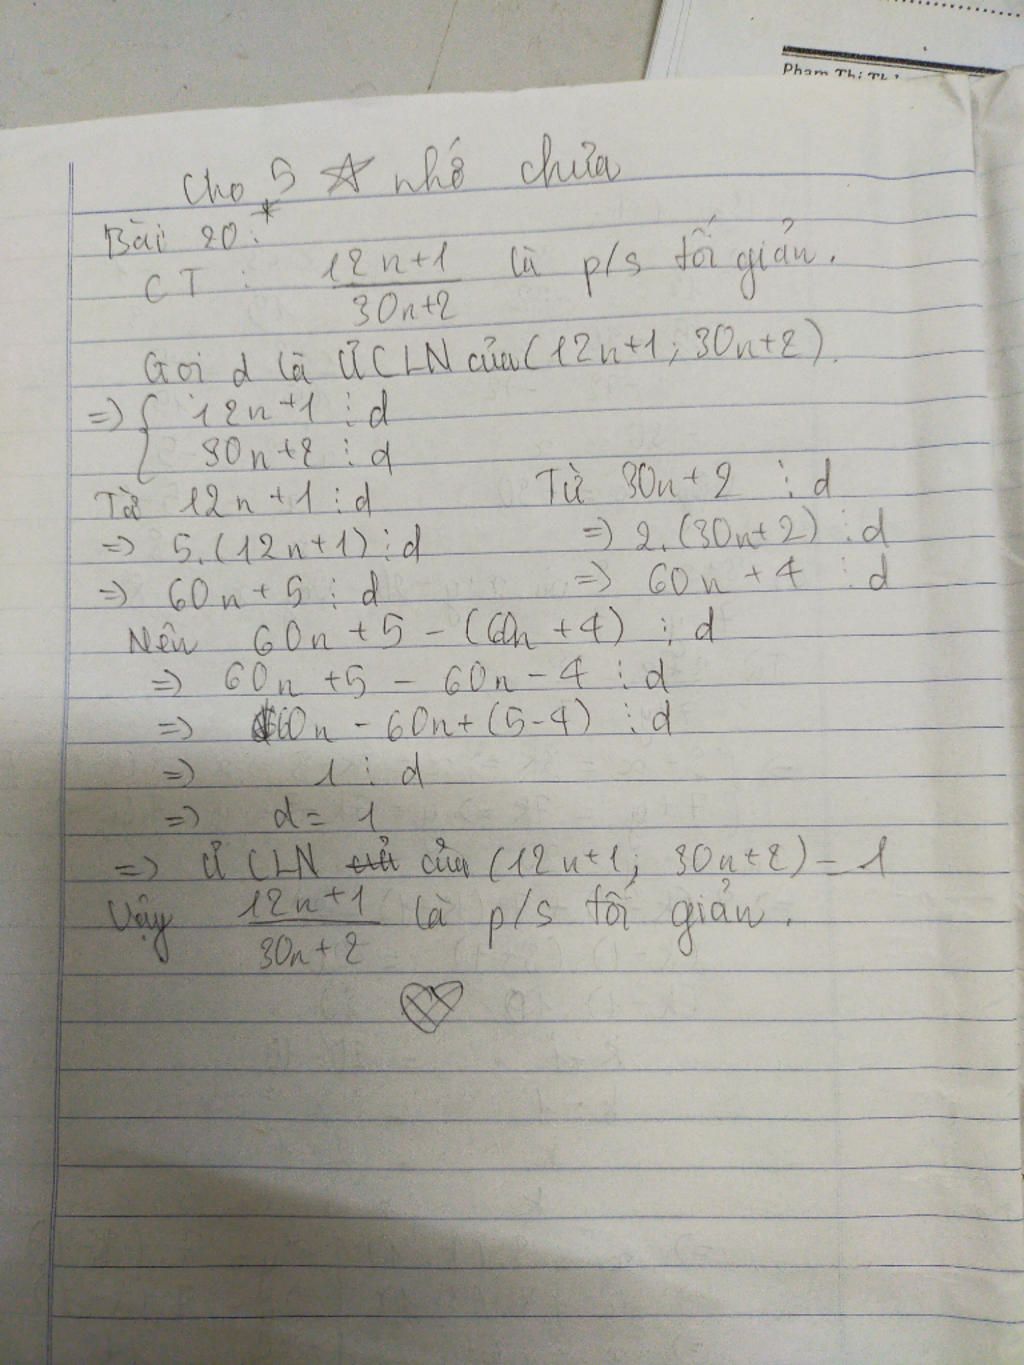 Phạm Thị Th
Cho 5 ☆ nhớ chưa
Bài 20*:
CT : (12n+1)/(30n+2) là p/s tối giản.
Gọi d là ƯCLN của (12n+1; 30n+2).
=> { 12n+1 ⋮ d
30n+2 ⋮ d
Từ 12n+1 ⋮ d
=> 5.(12n+1) ⋮ d
=> 60n+5 ⋮ d
Từ 30n+2 ⋮ d
=> 2.(30n+2) ⋮ d
=> 60n+4 ⋮ d
Nên 60n+5 - (60n+4) ⋮ d
=> 60n+5 - 60n - 4 ⋮ d
=> 60n - 60n + (5-4) ⋮ d
=> 1 ⋮ d
=> d = 1
=> ƯCLN của (12n+1; 30n+2) = 1
Vậy (12n+1)/(30n+2) là p/s tối giản.